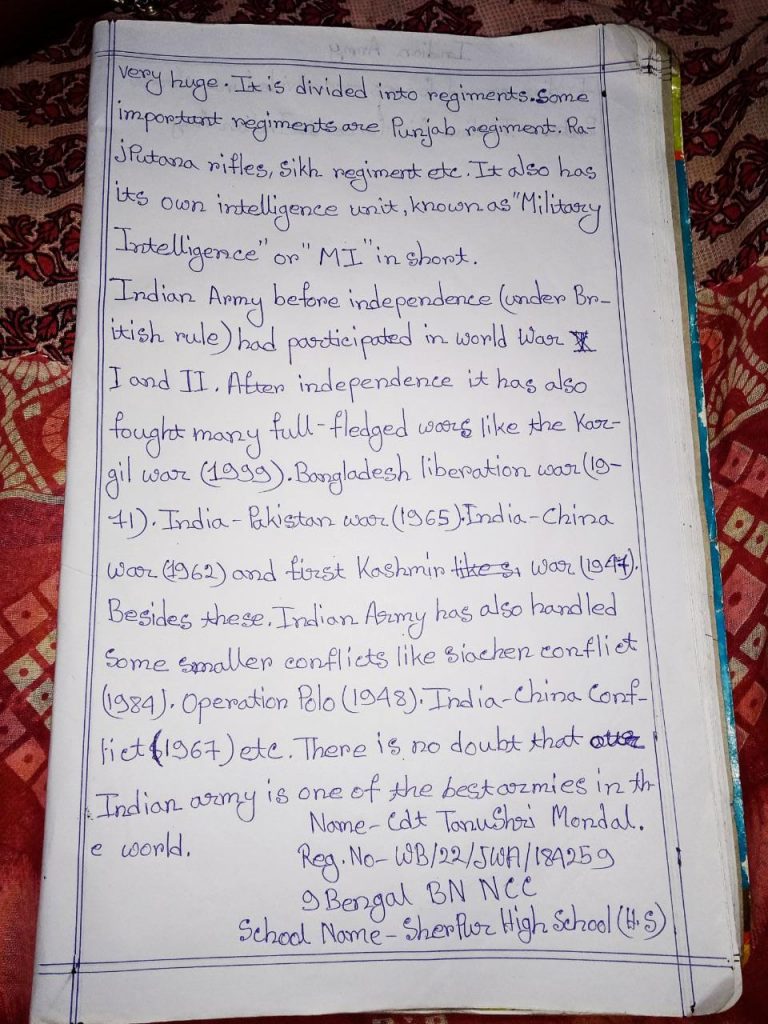 very huge. It is divided into regiments. Some
important regiments are Punjab regiment. Ra-
jPutana rifles, Sikh regiment etc. It also has
its own intelligence unit, known as "Military
Intelligence" or "MI" in short.
Indian Army before independence (under Br-
itish rule) had participated in world War
I and II. After independence it has also
fought many full-fledged wars like the Kar-
gil war (1999). Bangladesh liberation war (19-
71). India-Pakistan war (1965). India-China
war (1962) and first Kashmir war (1947).
Besides these, Indian Army has also handled
Some smaller conflicts like Siachen conflict
(1984). Operation Polo (1948). India-China Conf-
lict (1967) etc. There is no doubt that
Indian army is one of the best armies in th
e world.
Name - Cdt TanuShri Mondal.
Reg. No - WB/22/JWA/184259
9 Bengal BN NCC
School Name - SherPur High School (H.S)